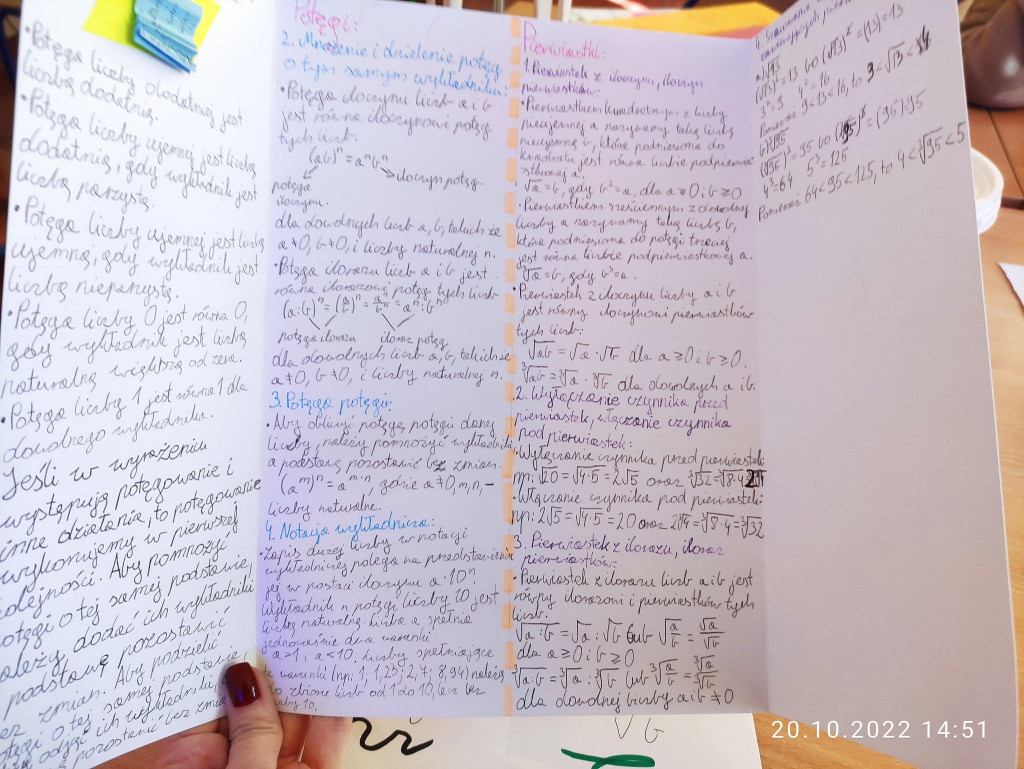 • Potęga liczby dodatniej jest
liczbą dodatnią.
• Potęga liczby ujemnej jest liczbą
dodatnią, gdy wykładnik jest
liczbą parzystą.
• Potęga liczby ujemnej jest liczbą
ujemną, gdy wykładnik jest
liczbą nieparzystą.
• Potęga liczby 0 jest równa 0,
gdy wykładnik jest liczbą
naturalną większą od zera.
• Potęga liczby 1 jest równa 1 dla
dowolnego wykładnika.
Jeśli w wyrażeniu
występują potęgowanie i
inne działania, to potęgowanie
wykonujemy w pierwszej
kolejności. Aby pomnożyć
potęgi o tej samej podstawie,
należy dodać ich wykładniki
podstawę pozostawić
bez zmian. Aby podzielić
potęgi o tej samej podstawie,
odjąć ich wykładniki,
pozostawić bez zmian
Potęgi:
2. Mnożenie i dzielenie potęg
o tym samym wykładniku:
• Potęga iloczynu liczb a i b
jest równa iloczynowi potęg
tych liczb.
(ab)ⁿ = aⁿbⁿ
potęga iloczyn potęg.
iloczynu.
dla dowolnych liczb a, b, takich że
a≠0, b≠0, i liczby naturalnej n.
• Potęga ilorazu liczb a i b jest
równa ilorazowi potęg tych liczb
(a:b)ⁿ = (a/b)ⁿ = aⁿ/bⁿ = aⁿ:bⁿ
potęga ilorazu iloraz potęg
dla dowolnych liczb a, b, takich że
a≠0, b≠0, i liczby naturalnej n.
3. Potęga potęgi:
• Aby obliczyć potęgę potęgi danej
liczby, należy pomnożyć wykładniki,
a podstawę pozostawić bez zmian.
(aᵐ)ⁿ = aᵐ·ⁿ, gdzie a≠0, m, n, –
liczby naturalne.
4. Notacja wykładnicza:
• Zapis dużej liczby w notacji
wykładniczej polega na przedstawieniu
jej w postaci iloczynu a·10ⁿ.
Wykładnik n potęgi liczby 10 jest
liczbą naturalną. Liczba a spełnia
jednocześnie dwa warunki:
a≥1, a<10. Liczby spełniające
te warunki (np.: 1; 1,23; 2,7; 8,94) należą
do zbioru liczb od 1 do 10, lecz bez
liczby 10,
Pierwiastki:
1. Pierwiastek z iloczynu, iloczyn
pierwiastków:
• Pierwiastkiem kwadratowym z liczby
nieujemnej a nazywamy taką liczbę
nieujemną b, która podniesiona do
kwadratu jest równa liczbie podpierwia-
stkowej a.
√a = b, gdy b² = a, dla a≥0 i b≥0
• Pierwiastkiem sześciennym z dowolnej
liczby a nazywamy taką liczbę b,
która podniesiona do potęgi trzeciej
jest równa liczbie podpierwiastkowej a.
∛a = b, gdy b³ = a.
• Pierwiastek z iloczynu liczby a i b
jest równy iloczynowi pierwiastków
tych liczb:
√ab = √a · √b dla a≥0 i b≥0.
∛ab = ∛a · ∛b dla dowolnych a i b.
2. Wyłączanie czynnika przed
pierwiastek, włączanie czynnika
pod pierwiastek:
• Wyłączanie czynnika przed pierwiastek
np.: √20 = √4·5 = 2√5 oraz ∛32 = ∛8·4 2∛4
• Włączanie czynnika pod pierwiastek:
np.: 2√5 = √4·5 = 20 oraz 2∛4 = ∛8·4 = ∛32
3. Pierwiastek z ilorazu, iloraz
pierwiastków:
• Pierwiastek z ilorazu liczb a i b jest
równy ilorazowi pierwiastków tych
liczb:
√a:b = √a : √b lub √a/b = √a/√b
dla a≥0 i b≥0
∛a:b = ∛a : ∛b lub ∛a/b = ∛a/∛b
dla dowolnej liczby a i b≠0
• √13
(√13)² = 13 bo (√13)² = (13) = 13
3² = 9 4² = 16
Ponieważ 9<13<16, to 3<√13<4
• ∛95
(∛95)³ = 95 bo (∛95)³ = (95) 95
4³ = 64 5³ = 125
Ponieważ 64<95<125, to 4<∛95<5
√b
20.10.2022 14:51